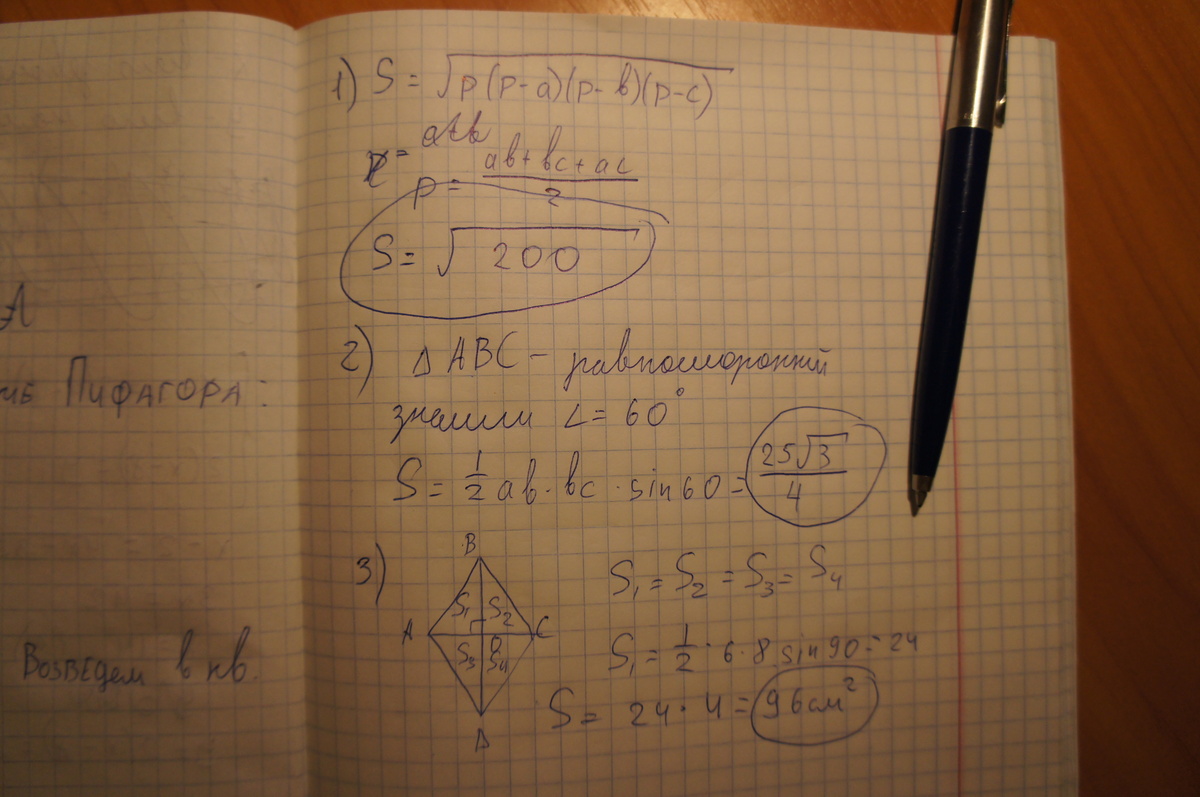 А
Пифагора:
Возведем в кв.
1) S = √p(p-a)(p-b)(p-c)
= a+b
p = ab+bc+ac / 2
S = √200
2) Δ ABC - равносторонний
значит ∠ = 60°
S = 1/2 ab · bc · sin60 = 25√3 / 4
3)
B
S1 S2
A C
S3 S4
D
S1 = S2 = S3 = S4
S1 = 1/2 · 6 · 8 sin90 = 24
S = 24 · 4 = 96 см²